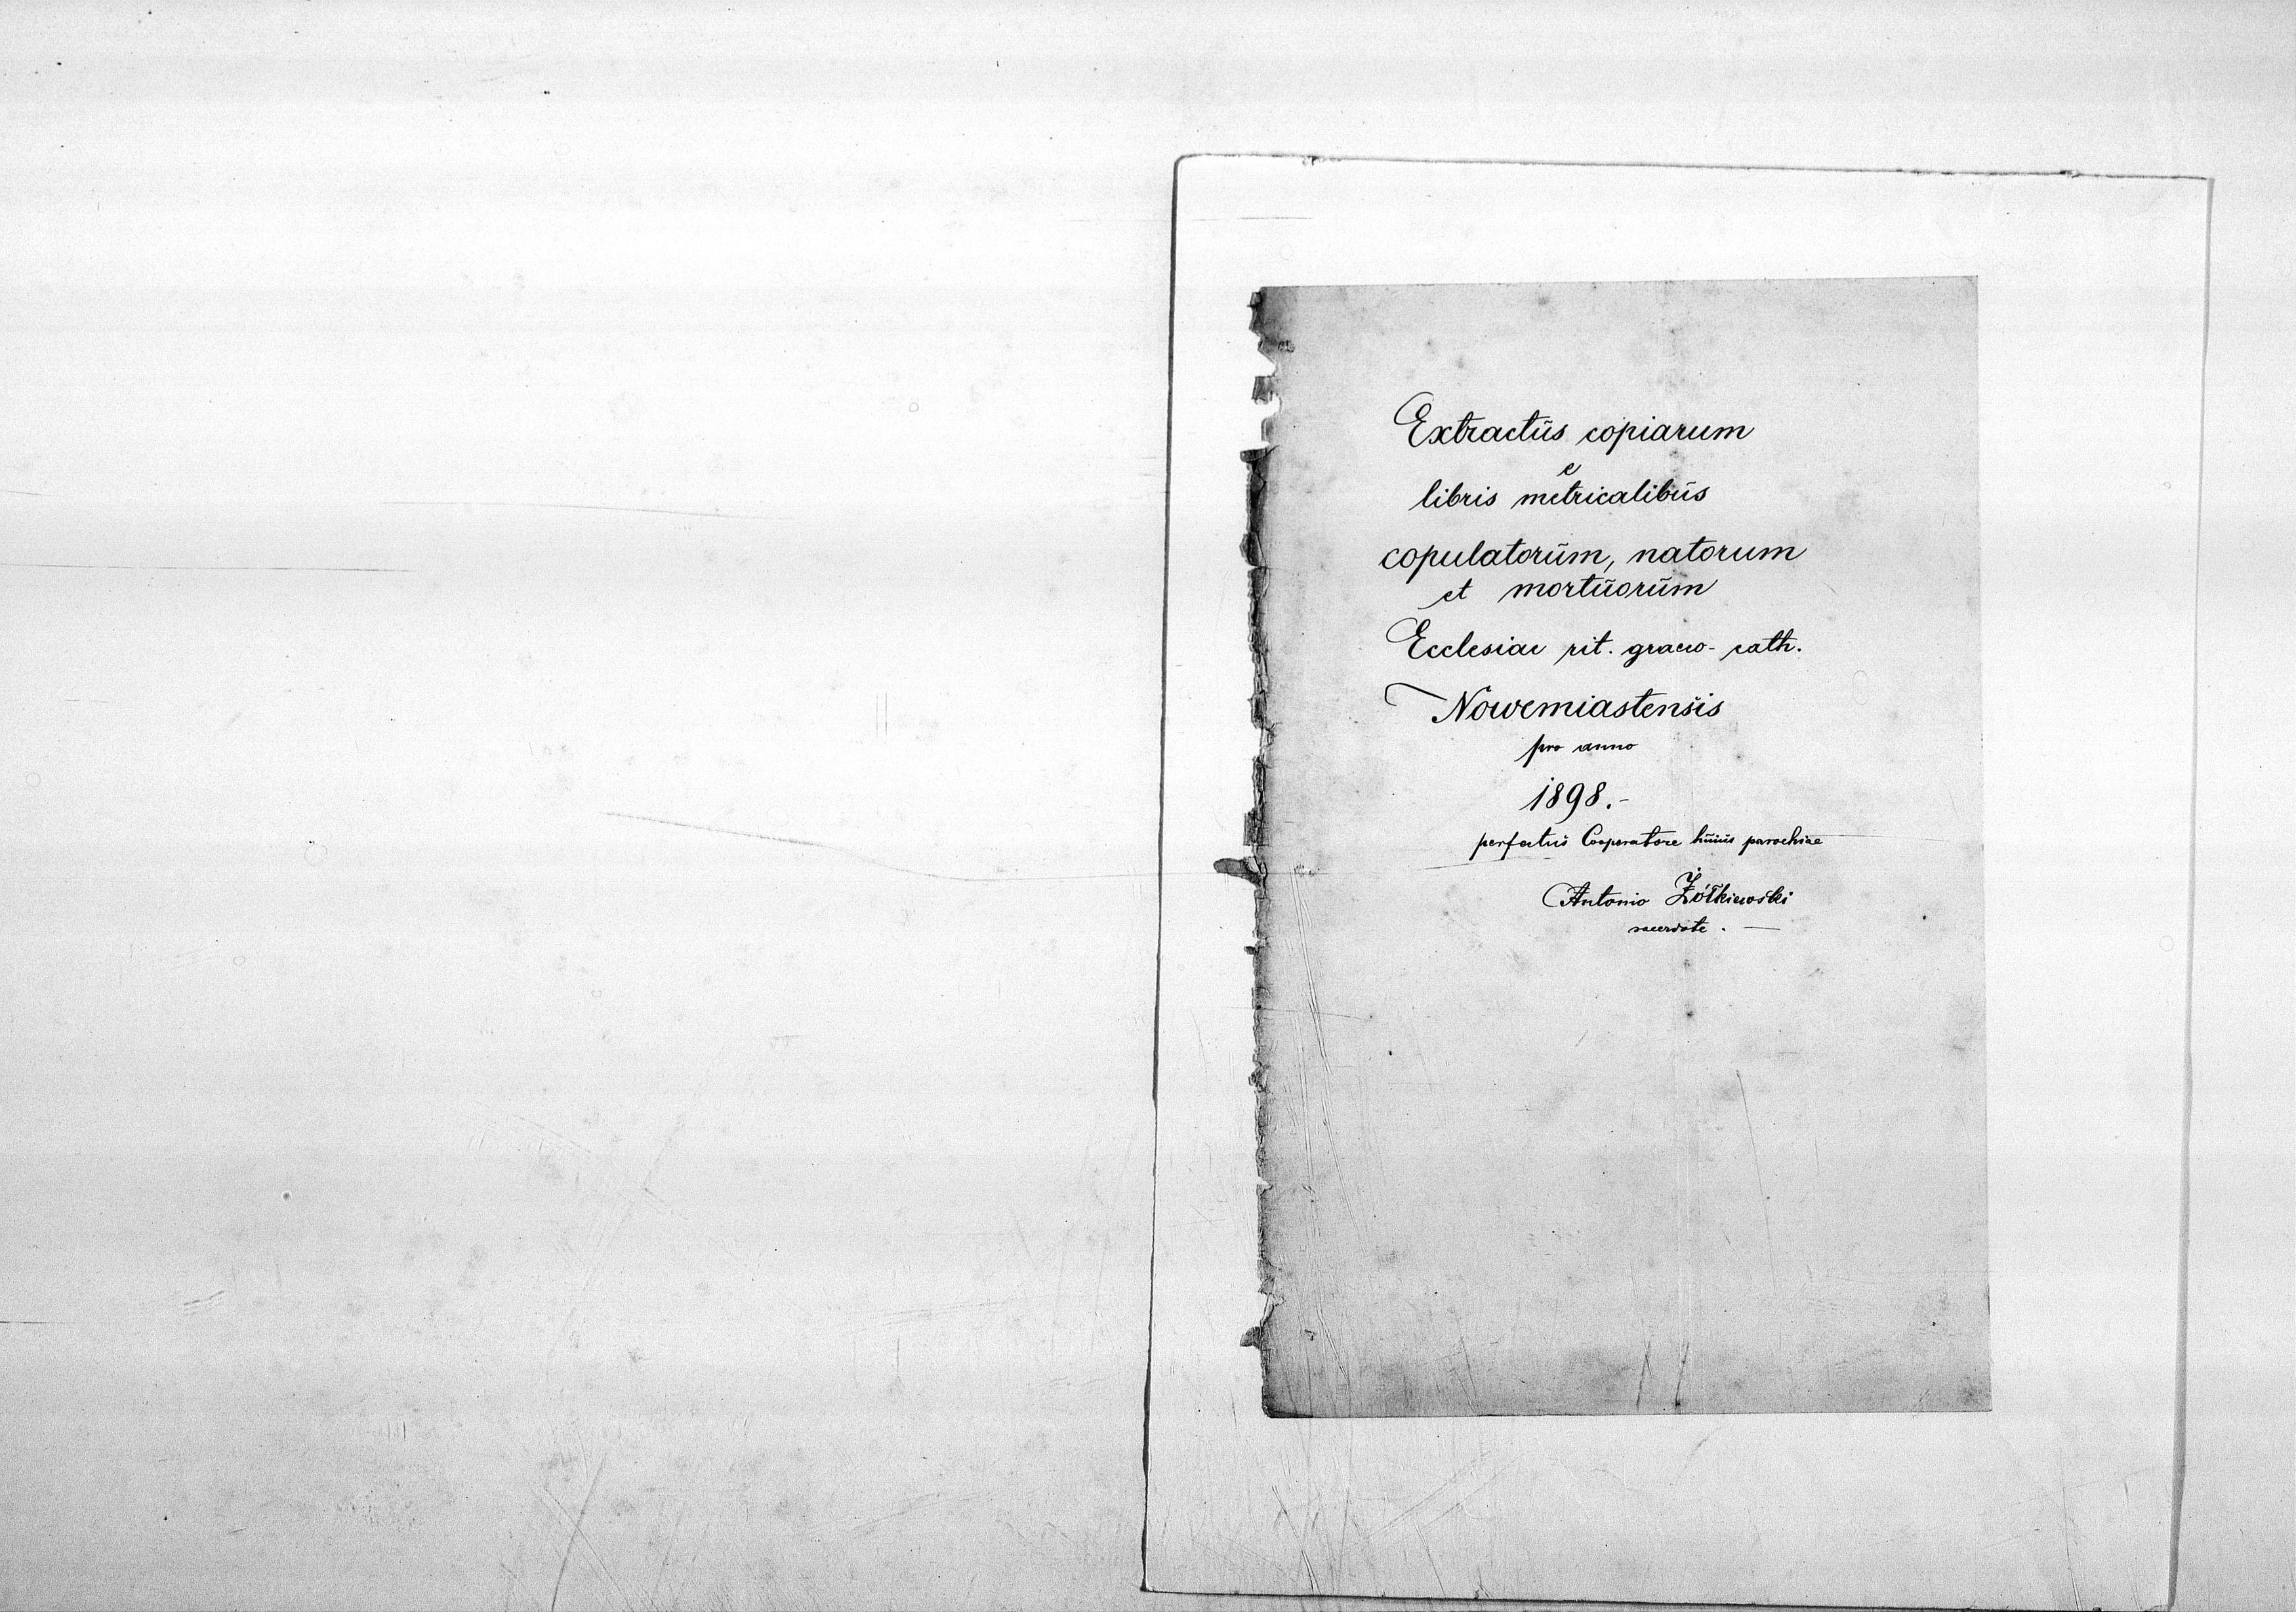 Extractus copiarum
e
libris metricalibus
copulatorum, natorum
et mortuorum
Ecclesiae rit. graeco-cath.
Nowemiastensis
pro anno
1898.-
perfectus Cooperatore huius parochiae
Antonio Żółkiewski
sacerdote. —